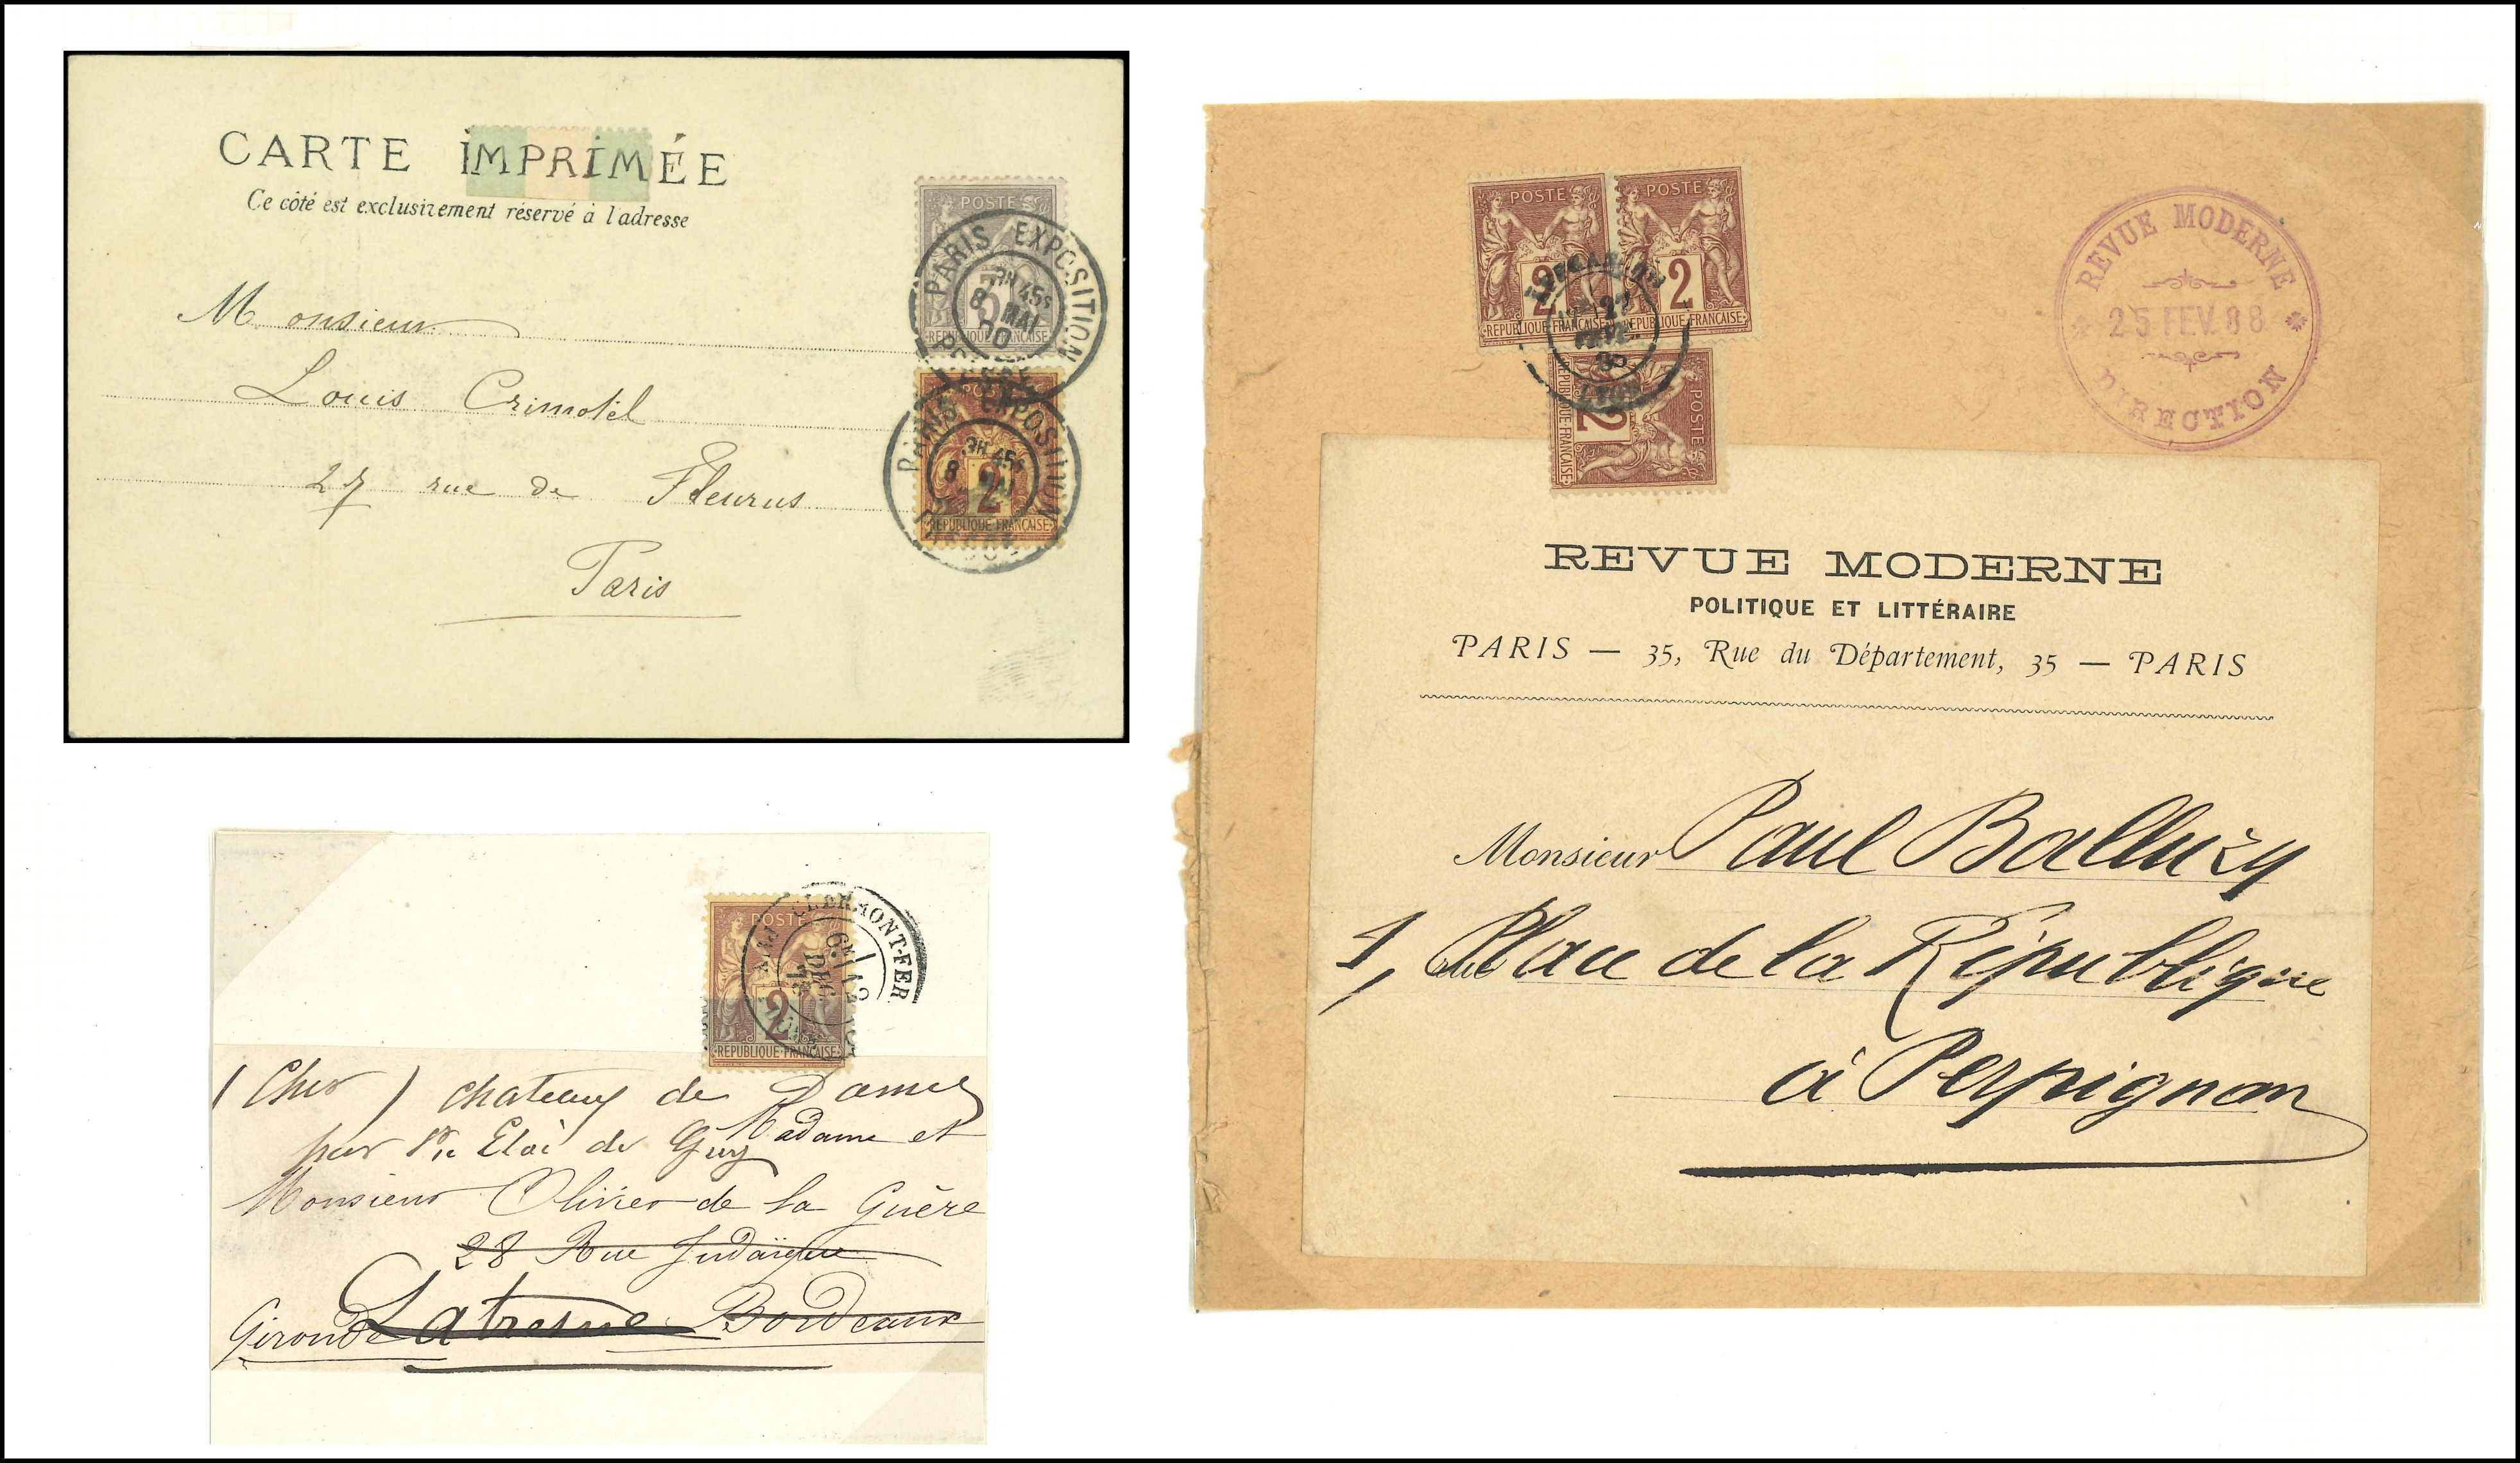 CARTE IMPRIMÉE
Ce côté est exclusivement réservé à l'adresse
Monsieur
Louis Crimotel
27 rue de Fleurus
Paris
POSTE
RÉPUBLIQUE FRANÇAISE
PARIS EXPOSITION
8 MAI
00
POSTE
2
REPUBLIQUE FRANÇAISE
PARIS EXPOSITION
8
POSTE
2
REPUBLIQUE FRANÇAISE
CLERMONT-FER
DEC
(Cher) chateau de
par Eloi de Madame et
Monsieur Olivier de la Guère
28 Rue Judaïque
Gironde Latresne Bordeaux
POSTE
2
REPUBLIQUE FRANÇAISE
POSTE
2
REPUBLIQUE FRANÇAISE
POSTE
2
REPUBLIQUE FRANÇAISE
REVUE MODERNE
25 FEV. 88
DIRECTION
REVUE MODERNE
POLITIQUE ET LITTÉRAIRE
PARIS — 35, Rue du Département, 35 — PARIS
Monsieur Paul
1, Place de la République
à Perpignan